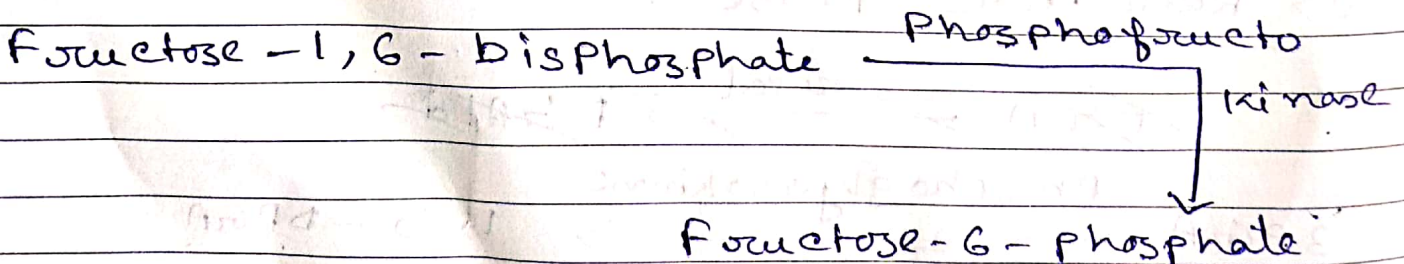 Fructose-1,6-bisphosphate Phosphofructo
kinase
Fructose-6-phosphate